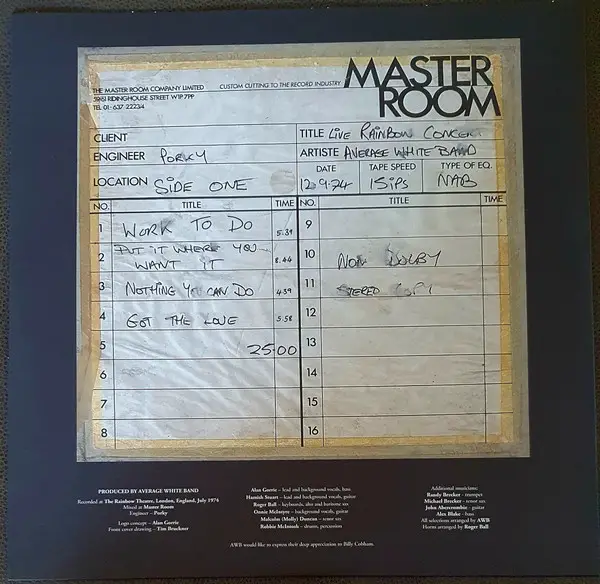 THE MASTER ROOM COMPANY LIMITED
59/61 RIDINGHOUSE STREET W1P 7PP
TEL 01-637-2223/4
CUSTOM CUTTING TO THE RECORD INDUSTRY
MASTER
ROOM
CLIENT
TITLE LIVE RAINBOW CONCERT
ENGINEER PORKY
ARTISTE AVERAGE WHITE BAND
LOCATION SIDE ONE
DATE TAPE SPEED TYPE OF EQ.
12.9.74 15ips NAB
NO. TITLE TIME NO. TITLE TIME
1 WORK TO DO 5.39 9
2 PUT IT WHERE YOU
WANT IT 8.44 10 NON DOLBY
3 NOTHING YOU CAN DO 4.39 11 STEREO COPY
4 GOT THE LOVE 5.58 12
5 25.00 13
6 14
7 15
8 16
PRODUCED BY AVERAGE WHITE BAND
Recorded at The Rainbow Theatre, London, England, July 1974
Mixed at Master Room
Engineer – Porky
Logo concept – Alan Gorrie
Front cover drawing – Tim Bruckner
Alan Gorrie – lead and background vocals, bass
Hamish Stuart – lead and background vocals, guitar
Roger Ball – keyboards, alto and baritone sax
Onnie McIntyre – background vocals, guitar
Malcolm (Molly) Duncan – tenor sax
Robbie McIntosh – drums, percussion
Additional musicians:
Randy Brecker – trumpet
Michael Brecker – tenor sax
John Abercrombie – guitar
Alex Blake – bass
All selections arranged by AWB
Horns arranged by Roger Ball
AWB would like to express their deep appreciation to Billy Cobham.